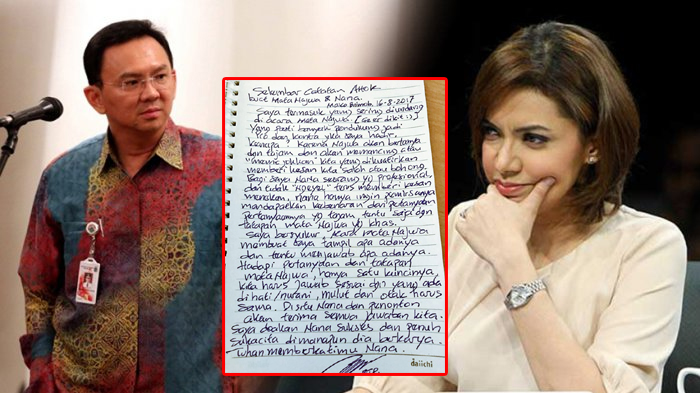 Selembar Catatan Ahok
buat Mata Najwa & Nana.
Mako Brimob 16-8-2017
Saya termasuk yang sering diundang
di acara Mata Najwa.
yang pasti banyak pendukung jadi
Pro dan kontra jika saya hadir.
kenapa? Karena Najwa akan bertanya
dgn tajam dan akan memancing atau
kita yang dikuatirkan
memberi kesan kita salah atau bohong.
Bagi saya Nana seorang yg profesional,
dan tidak "ngeyel" terus memberi kesan
menekan, Nana hanya ingin pemirsanya
mendapatkan kebenaran dari pertanyaan
pertanyaannya yg tajam tentu saja dgn
tatapan mata Najwa yg khas.
Saya bersyukur, acara mata Najwa
membuat saya tampil apa adanya
dan tentu menjawab apa adanya.
Hadapi pertanyaan dan tatapan
mata Najwa, hanya satu kuncinya,
kita harus jawab sesuai dgn yang ada
di hati/nurani, mulut dan otak harus
sama. Disitu Nana dan penonton
akan terima semua jawaban kita.
Saya doakan Nana sukses dan penuh
sukacita dimanapun dia berkarya.
Tuhan memberkatimu Nana.
BTP.
daiichi